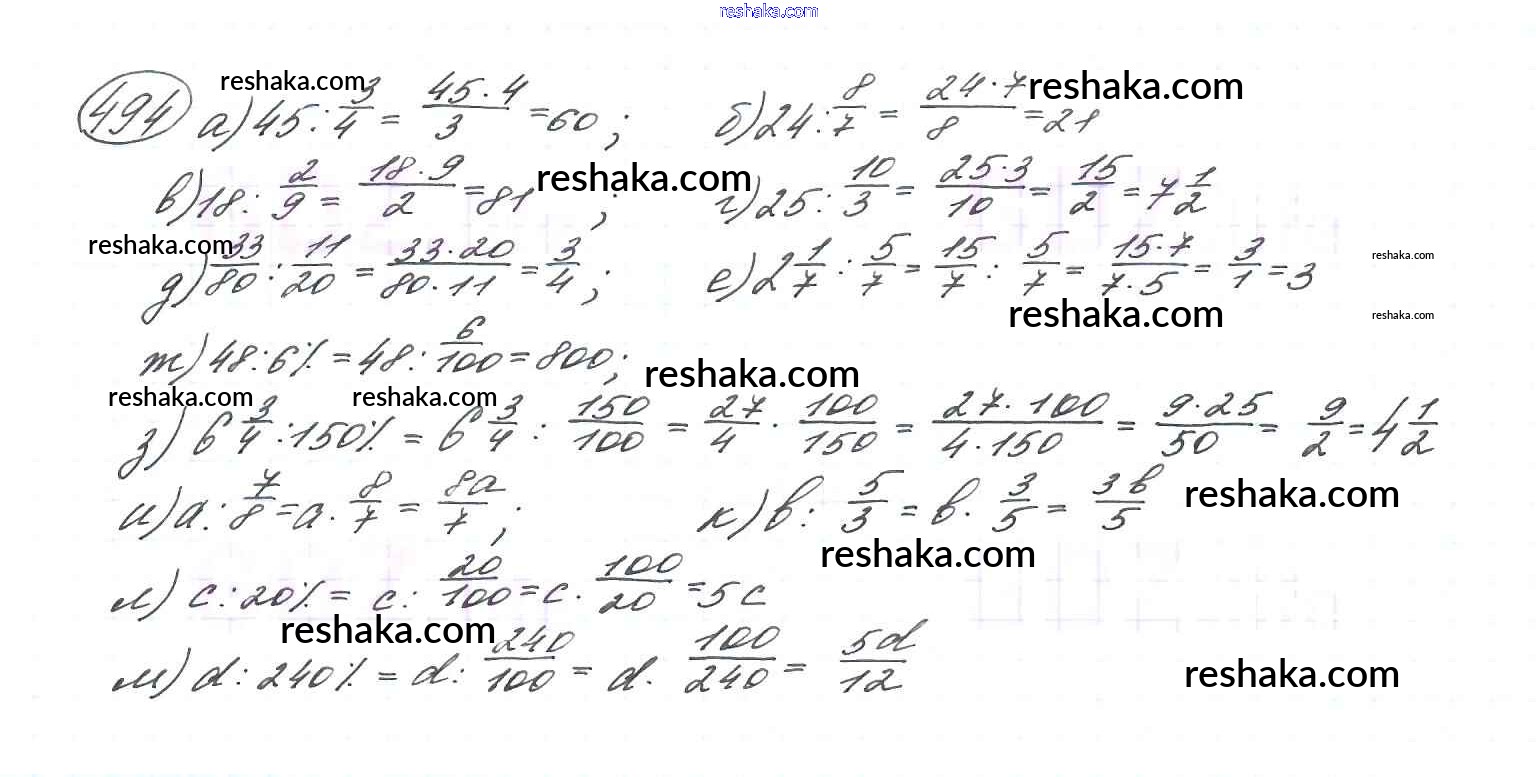 reshaka.com
494 а) 45 : 3/4 = 45·4/3 = 60; б) 24 : 8/7 = 24·7/8 = 21
reshaka.com reshaka.com
в) 18 : 2/9 = 18·9/2 = 81; г) 25 : 10/3 = 25·3/10 = 15/2 = 7 1/2
reshaka.com
д) 33/80 : 11/20 = 33·20/80·11 = 3/4; е) 2 1/7 : 5/7 = 15/7 : 5/7 = 15·7/7·5 = 3/1 = 3
reshaka.com reshaka.com
reshaka.com reshaka.com
ж) 48 : 6% = 48 : 6/100 = 800;
reshaka.com
reshaka.com reshaka.com
з) 6 3/4 : 150% = 6 3/4 : 150/100 = 27/4 · 100/150 = 27·100/4·150 = 9·25/50 = 9/2 = 4 1/2
и) a : 7/8 = a · 8/7 = 8a/7; к) b : 5/3 = b · 3/5 = 3b/5
reshaka.com
reshaka.com
л) c : 20% = c : 20/100 = c · 100/20 = 5c
reshaka.com
м) d : 240% = d : 240/100 = d · 100/240 = 5d/12
reshaka.com